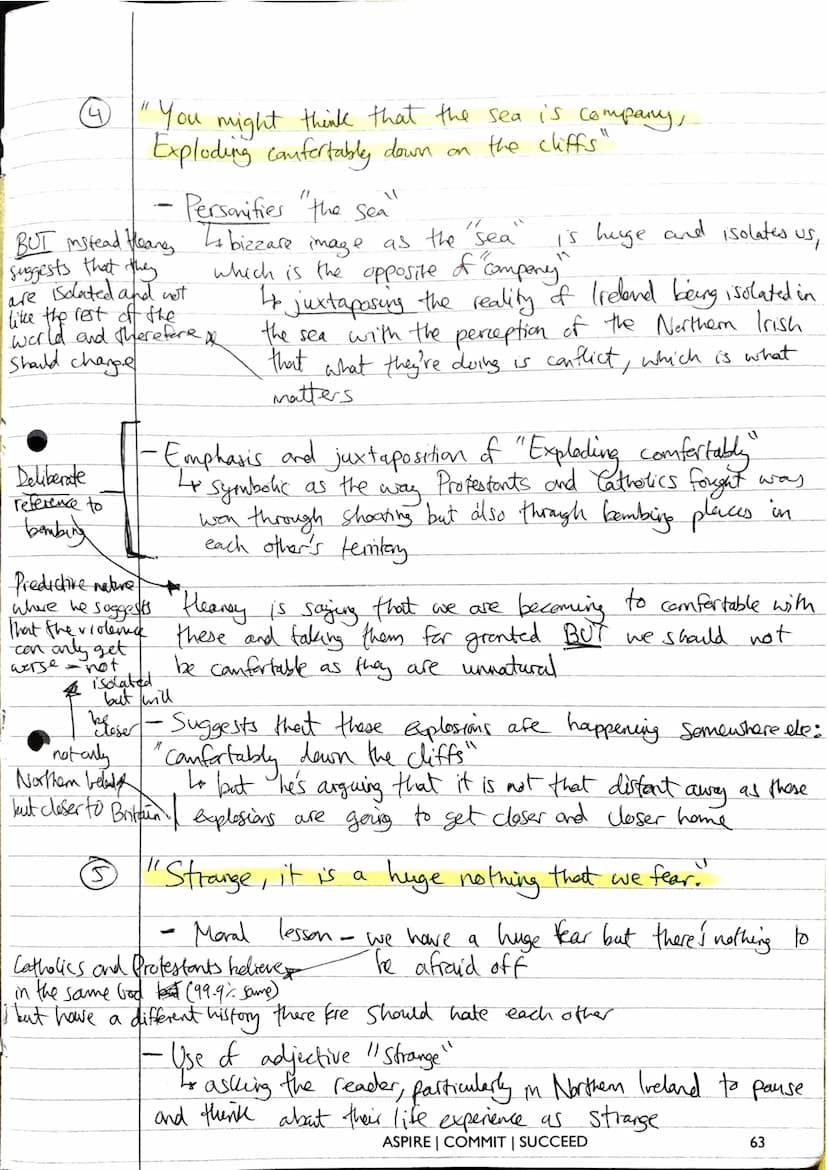 ④ "You might think that the sea is company,
Exploding comfortably down on the cliffs"
- Personifies "the sea"
↳ bizzare image as the "sea" is huge and isolates us,
which is the opposite of "company"
↳ juxtaposing the reality of Ireland being isolated in
the sea with the perception of the Northern Irish
that what they're doing is conflict, which is what
matters
BUT instead Heaney
suggests that they
are isolated and not
like the rest of the
world and therefore
should change
- Emphasis and juxtaposition of "Exploding comfortably"
↳ symbolic as the way Protestants and Catholics fought was
won through shooting but also through bombing places in
each other's territory
Deliberate
reference to
bombing
Heaney is saying that we are becoming to comfortable with
these and taking them for granted BUT we should not
be comfortable as they are unnatural
Predictive nature
where he suggests
that the violence
can only get
worse - not
isolated
but will
be closer
not only
Northern Ireland
but closer to Britain
- Suggests that these explosions are happening somewhere else:
"comfortably down the cliffs"
↳ but he's arguing that it is not that distant away as these
explosions are going to get closer and closer home
⑤ "Strange, it is a huge nothing that we fear."
- Moral lesson - we have a huge fear but there's nothing to
be afraid off
Catholics and Protestants believe
in the same God (99.9% same)
but have a different history therefore should hate each other
- Use of adjective "Strange"
↳ asking the reader, particularly in Northern Ireland to pause
and think about their life experience as strange
ASPIRE | COMMIT | SUCCEED 63